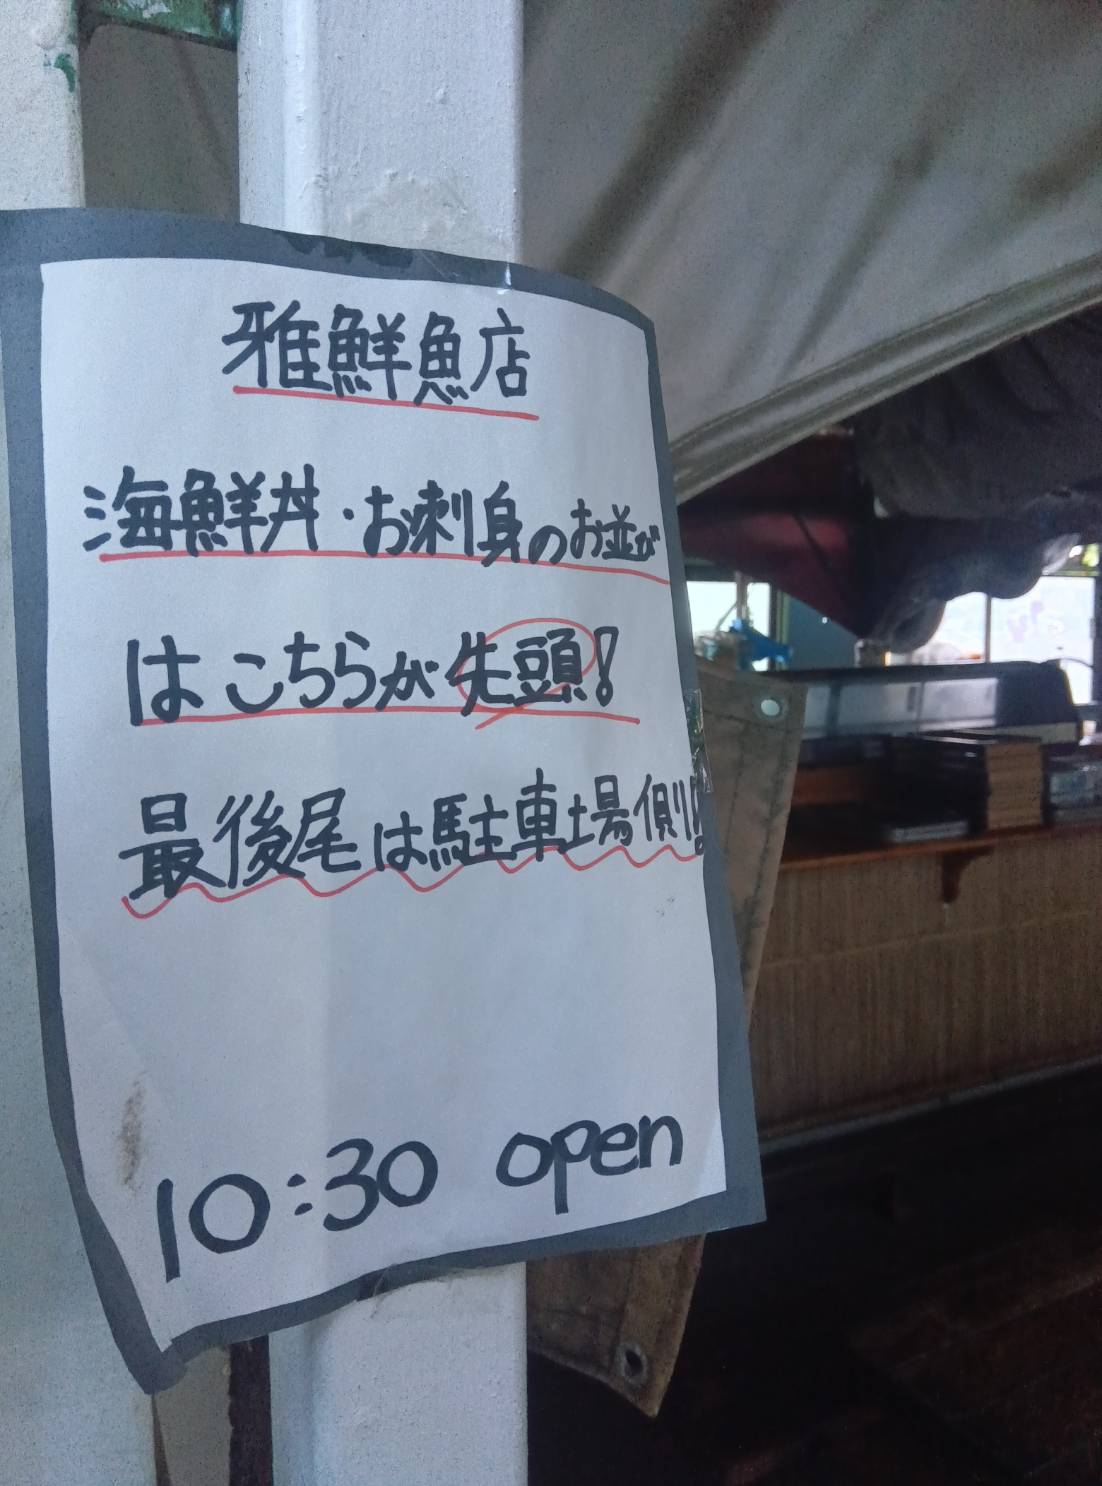 雅鮮魚店
海鮮丼・お刺身のお並び
はこちらが先頭!
最後尾は駐車場側!!
10:30 open